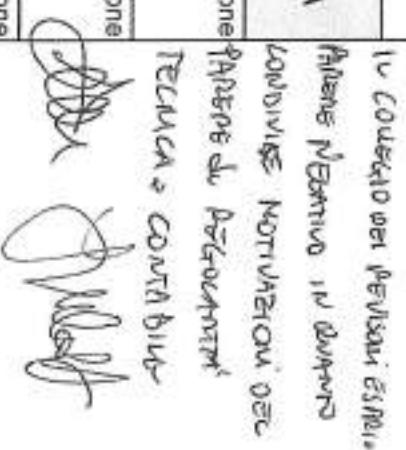 IL COLLEGIO DEI REVISORI ESPRI
PARERE NEGATIVO IN QUANTO
CONDIVISE MOTIVAZIONI DEL
PARERE DI REGOLARITA'
TECNICA E CONTABILE
one
one
one